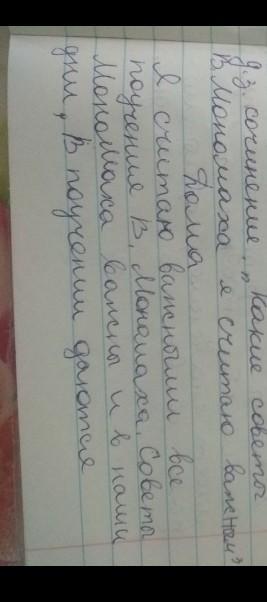 Д.з. сочинение „ Какие советы
В. Мономаха я считаю важным"
Дома
Я считаю важными все
поучения В. Мономаха. Советы
Мономаха важны и в наши
дни, В поучении даются